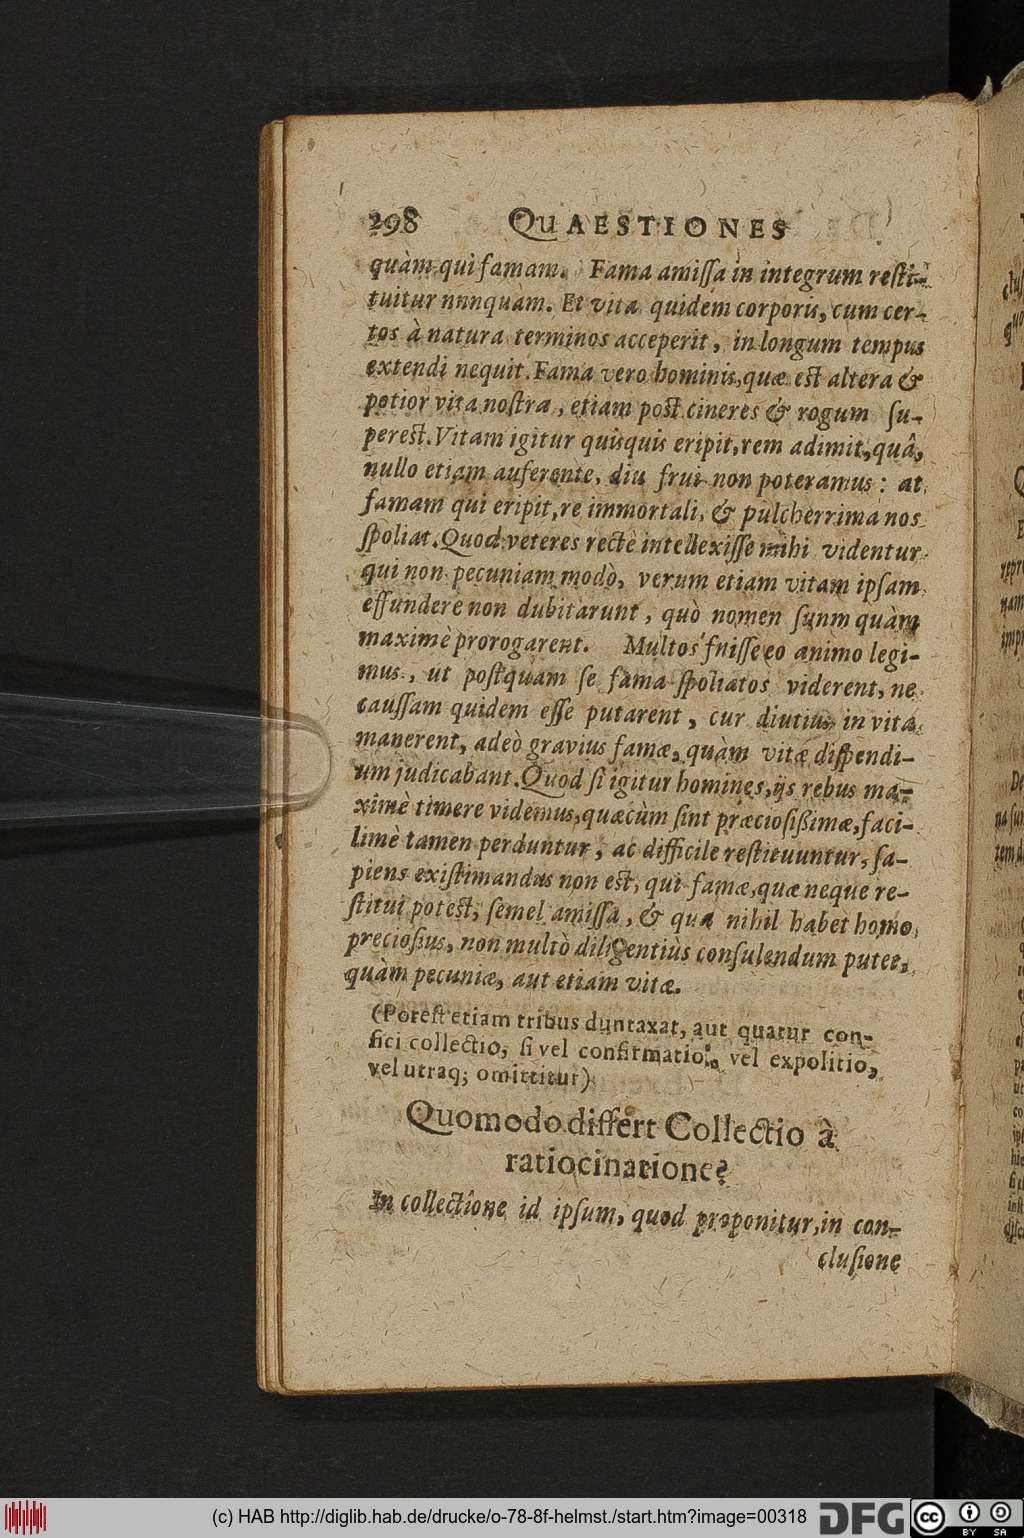 298 QUAESTIONES
quàm qui famam. Fama amiſſa in integrum reſti-
tuitur nnnquàm. Et vita quidem corporis, cum cer-
tos à natura terminos acceperit, in longum tempus
extendi nequit. Fama vero hominis, quæ est altera &
potior vita noſtra, etiam post cineres & rogum ſu-
perest. Vitam igitur quisquis eripit, rem adimit, quâ,
nullo etiam auferente, diu frui non poteramus: at
famam qui eripit, re immortali, & pulcherrima nos
ſpoliat. Quod veteres rectè intellexiſſe mihi videntur
qui non pecuniam modò, verum etiam vitam ipſam
effundere non dubitarunt, quò nomen ſunm quàm
maximè prorogarent. Multos fniſſe eo animo legi-
mus, ut poſtquam ſe fama ſpoliatos viderent, ne
cauſſam quidem eſſe putarent, cur diutius in vita
manerent, adeò gravius famæ, quàm vitæ diſpendi-
um judicabant. Quod ſi igitur homines, ijs rebus ma-
ximè timere videmus, quæcùm ſint præcioſißimæ, faci-
limè tamen perduntur, ac difficile reſtituuntur, ſa-
piens exiſtimandus non est, qui famæ, quæ neque re-
ſtitui potest, ſemel amiſſa, & qua nihil habet homo
precioſius, non multò diligentiùs conſulendum putet,
quàm pecuniæ, aut etiam vitæ.
(Poteſt etiam tribus duntaxat, aut quatur con-
fici collectio, ſi vel confirmatio, vel expolitio,
vel utraq; omittitur)
Quomodo differt Collectio à
ratiocinatione?
In collectione id ipſum, quod proponitur, in con-
cluſione
(c) HAB http://diglib.hab.de/drucke/o-78-8f-helmst./start.htm?image=00318 DFG cc BY SA